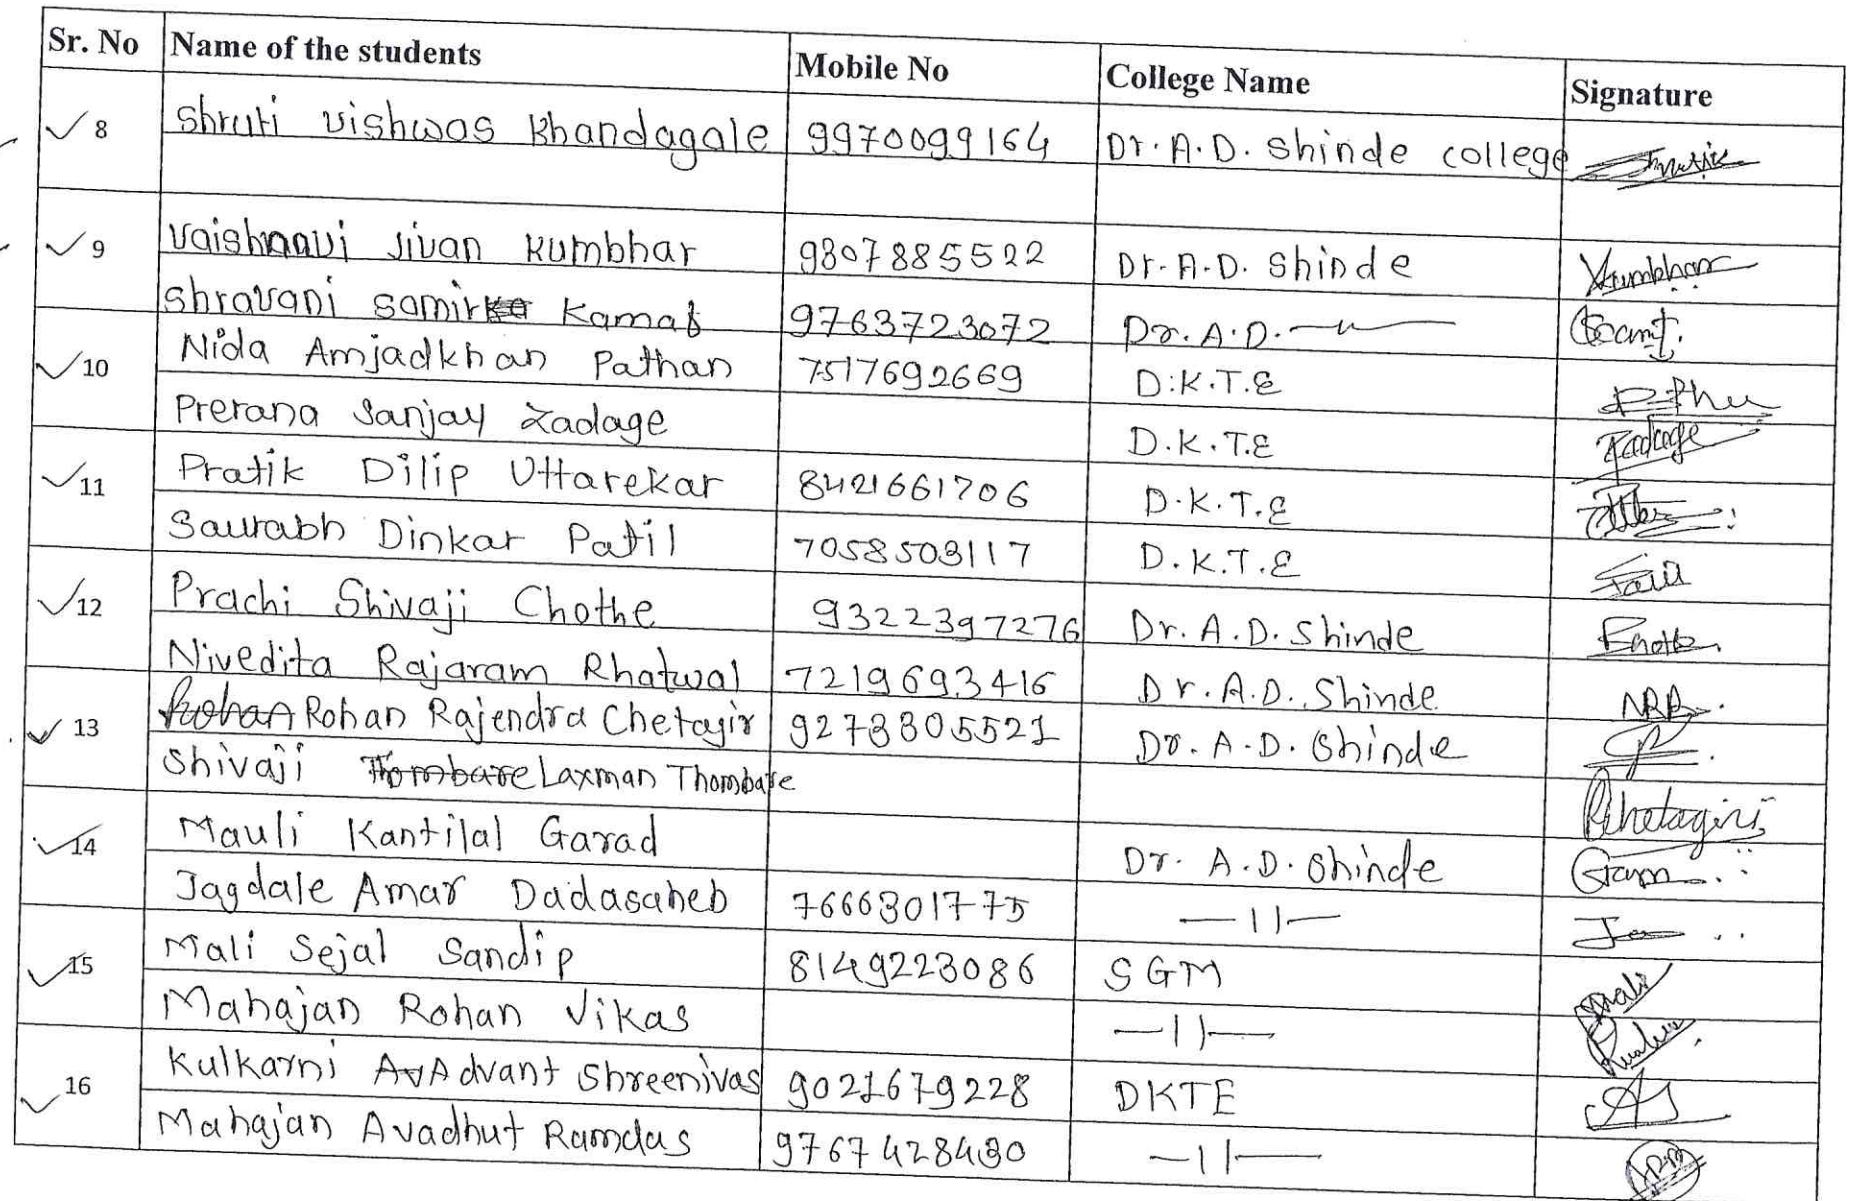 Sr. No Name of the students Mobile No College Name Signature
8 Shruti vishwas Khandagale 9970099164 Dr. A.D. Shinde college
9 Vaishnavi Jivan Kumbhar 9807885522 Dr. A.D. Shinde Kumbhar
Shravani samir Kamat 9763723072 Dr. A.D. —〃—
10 Nida Amjadkhan Pathan 7517692669 D.K.T.E
Prerana Sanjay Zadage D.K.T.E Zadage
11 Pratik Dilip Uttarekar 8421661706 D.K.T.E
Saurabh Dinkar Patil 7058503117 D.K.T.E
12 Prachi Shivaji Chothe 9322397276 Dr. A.D. Shinde
Nivedita Rajaram Rhatwal 7219693416 Dr. A.D. Shinde
13 Rohan Rohan Rajendra Chetagir 9273305521 Dr. A.D. Shinde
Shivaji Thombare Laxman Thombare Chetagiri
14 Mauli Kantilal Garad Dr. A.D. Shinde
Jagdale Amar Dadasaheb 7666301775 —11—
15 Mali Sejal Sandip 8149223086 SGM Mali
Mahajan Rohan Vikas —11—
16 Kulkarni Av Advant Shreenivas 9021679228 DKTE
Mahajan Avadhut Ramdas 9767428430 —11—